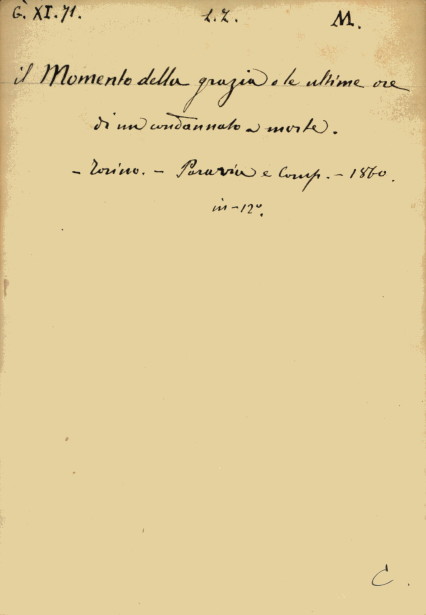 G. XI. 71. L. Z. M.
il Momento della grazia o le ultime ore
di un condannato a morte.
- Torino. - Paravia e Comp. - 1860.
in-12º.
C.